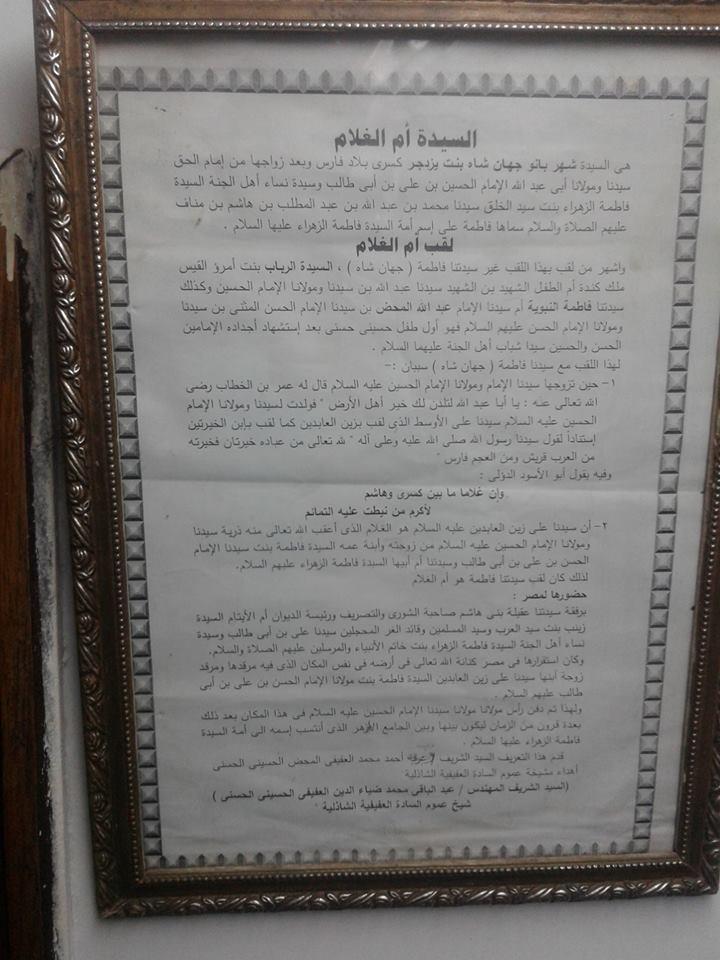 السيدة أم الغلام
هى السيدة شهر بانو جهان شاه بنت يزدجر كسرى بلاد فارس وبعد زواجها من إمام الحق
سيدنا ومولانا أبى عبد الله الإمام الحسين بن على بن أبى طالب وسيدة نساء أهل الجنة السيدة
فاطمة الزهراء بنت سيد الخلق سيدنا محمد بن عبد الله بن عبد المطلب بن هاشم بن مناف
عليهم الصلاة والسلام سماها فاطمة على إسم أمة السيدة فاطمة الزهراء عليها السلام .
لقب أم الغلام
واشهر من لقب بهذا اللقب غير سيدتنا فاطمة ( جهان شاه ) ، السيدة الرباب بنت أمرؤ القيس
ملك كندة أم الطفل الشهيد بن الشهيد سيدنا عبد الله بن سيدنا ومولانا الإمام الحسين وكذلك
سيدتنا فاطمة النبوية أم سيدنا الإمام عبد الله المحض بن سيدنا الإمام الحسن المثنى بن سيدنا
ومولانا الإمام الحسن عليهم السلام فهو أول طفل حسينى حسنى بعد إستشهاد أجداده الإمامين
الحسن والحسين سيدا شباب أهل الجنة عليهما السلام .
لهذا اللقب مع سيدتنا فاطمة ( جهان شاه ) سببان :-
١- حين تزوجها سيدنا الإمام ومولانا الإمام الحسين عليه السلام قال له عمر بن الخطاب رضى
الله تعالى عنه : يا أبا عبد الله لتلدن لك خير أهل الأرض " فولدت لسيدنا ومولانا الإمام
الحسين عليه السلام سيدنا على الأوسط الذى لقب بزين العابدين كما لقب بإبن الخيرتين
إستناداً لقول سيدنا رسول الله صلى الله عليه وعلى آله " لله تعالى من عباده خيرتان فخيرته
من العرب قريش ومن العجم فارس "
وفيه يقول أبو الأسود الدؤلى :
وإن غلاما ما بين كسرى وهاشم
لأكرم من نيطت عليه التمائم
٢- أن سيدنا على زين العابدين عليه السلام هو الغلام الذى أعقب الله تعالى منه ذرية سيدنا
ومولانا الإمام الحسين عليه السلام من زوجته وأبنة عمه السيدة فاطمة بنت سيدنا الإمام
الحسن بن على بن أبى طالب وسيدتنا أم أبيها السيدة فاطمة الزهراء عليهم السلام.
لذلك كان لقب سيدتنا فاطمة هو أم الغلام
حضورها لمصر :
برفقة سيدتنا عقيلة بنى هاشم صاحبة الشورى والتصريف ورئيسة الديوان أم الأيتام السيدة
زينب بنت سيد العرب وسيد المسلمين وقائد الغر المحجلين سيدنا على بن أبى طالب وسيدة
نساء أهل الجنة السيدة فاطمة الزهراء بنت خاتم الأنبياء والمرسلين عليهم الصلاة والسلام.
وكان استقرارها فى مصر كنانة الله تعالى فى أرضه فى نفس المكان الذى فيه مرقدها ومرقد
زوجة أبنها سيدنا على زين العابدين السيدة فاطمة بنت مولانا الإمام الحسن بن على بن أبى
طالب عليهم السلام .
ولهذا تم دفن رأس مولانا مولانا سيدنا الإمام الحسين عليه السلام فى هذا المكان بعد ذلك
بعدة قرون من الزمان ليكون بينها وبين الجامع الأزهر الذى أنتسب إسمه الى أمة السيدة
فاطمة الزهراء عليها السلام .
قدم هذا التعريف السيد الشريف / أحمد محمد العفيفى المحض الحسينى الحسنى
أهداء مشيخة عموم السادة العفيفية الشاذلية
(السيد الشريف المهندس / عبد الباقى محمد ضياء الدين العفيفى الحسينى الحسنى )
شيخ عموم السادة العفيفية الشاذلية "